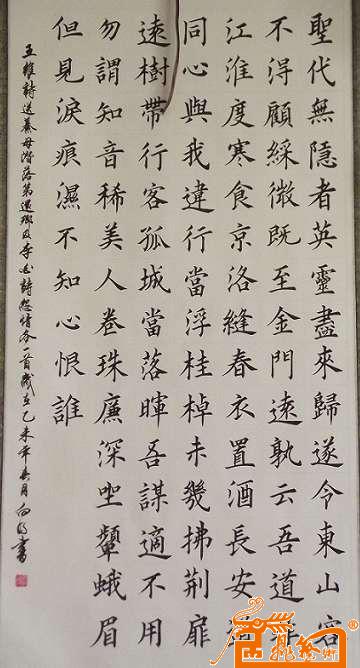 聖代無隱者英靈盡來歸遂令東山客
不得顧綵微既至金門遠孰云吾道非
江淮度寒食京洛縫春衣置酒長安道
同心與我違行當浮桂棹未幾拂荆扉
遠樹帶行客孤城當落暉吾謀適不用
勿謂知音稀美人卷珠廉深坐顰蛾眉
但見淚痕濕不知心恨誰
王維詩送綦毋潛落第還鄉及李白詩怨情各一首歲在乙未年春月書